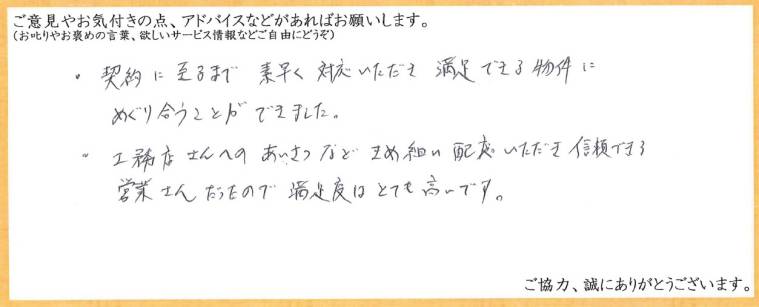 ご意見やお気付きの点、アドバイスなどがあればお願いします。
(お叱りやお褒めの言葉、欲しいサービス情報などご自由にどうぞ)
・契約に至るまで 素早く 対応いただき 満足できる物件に
めぐり合うことができました。
・工務店さんへの あいさつ など きめ細い 配慮いただき 信頼できる
営業さん だったので 満足度は とても 高いです。
ご協力、誠にありがとうございます。